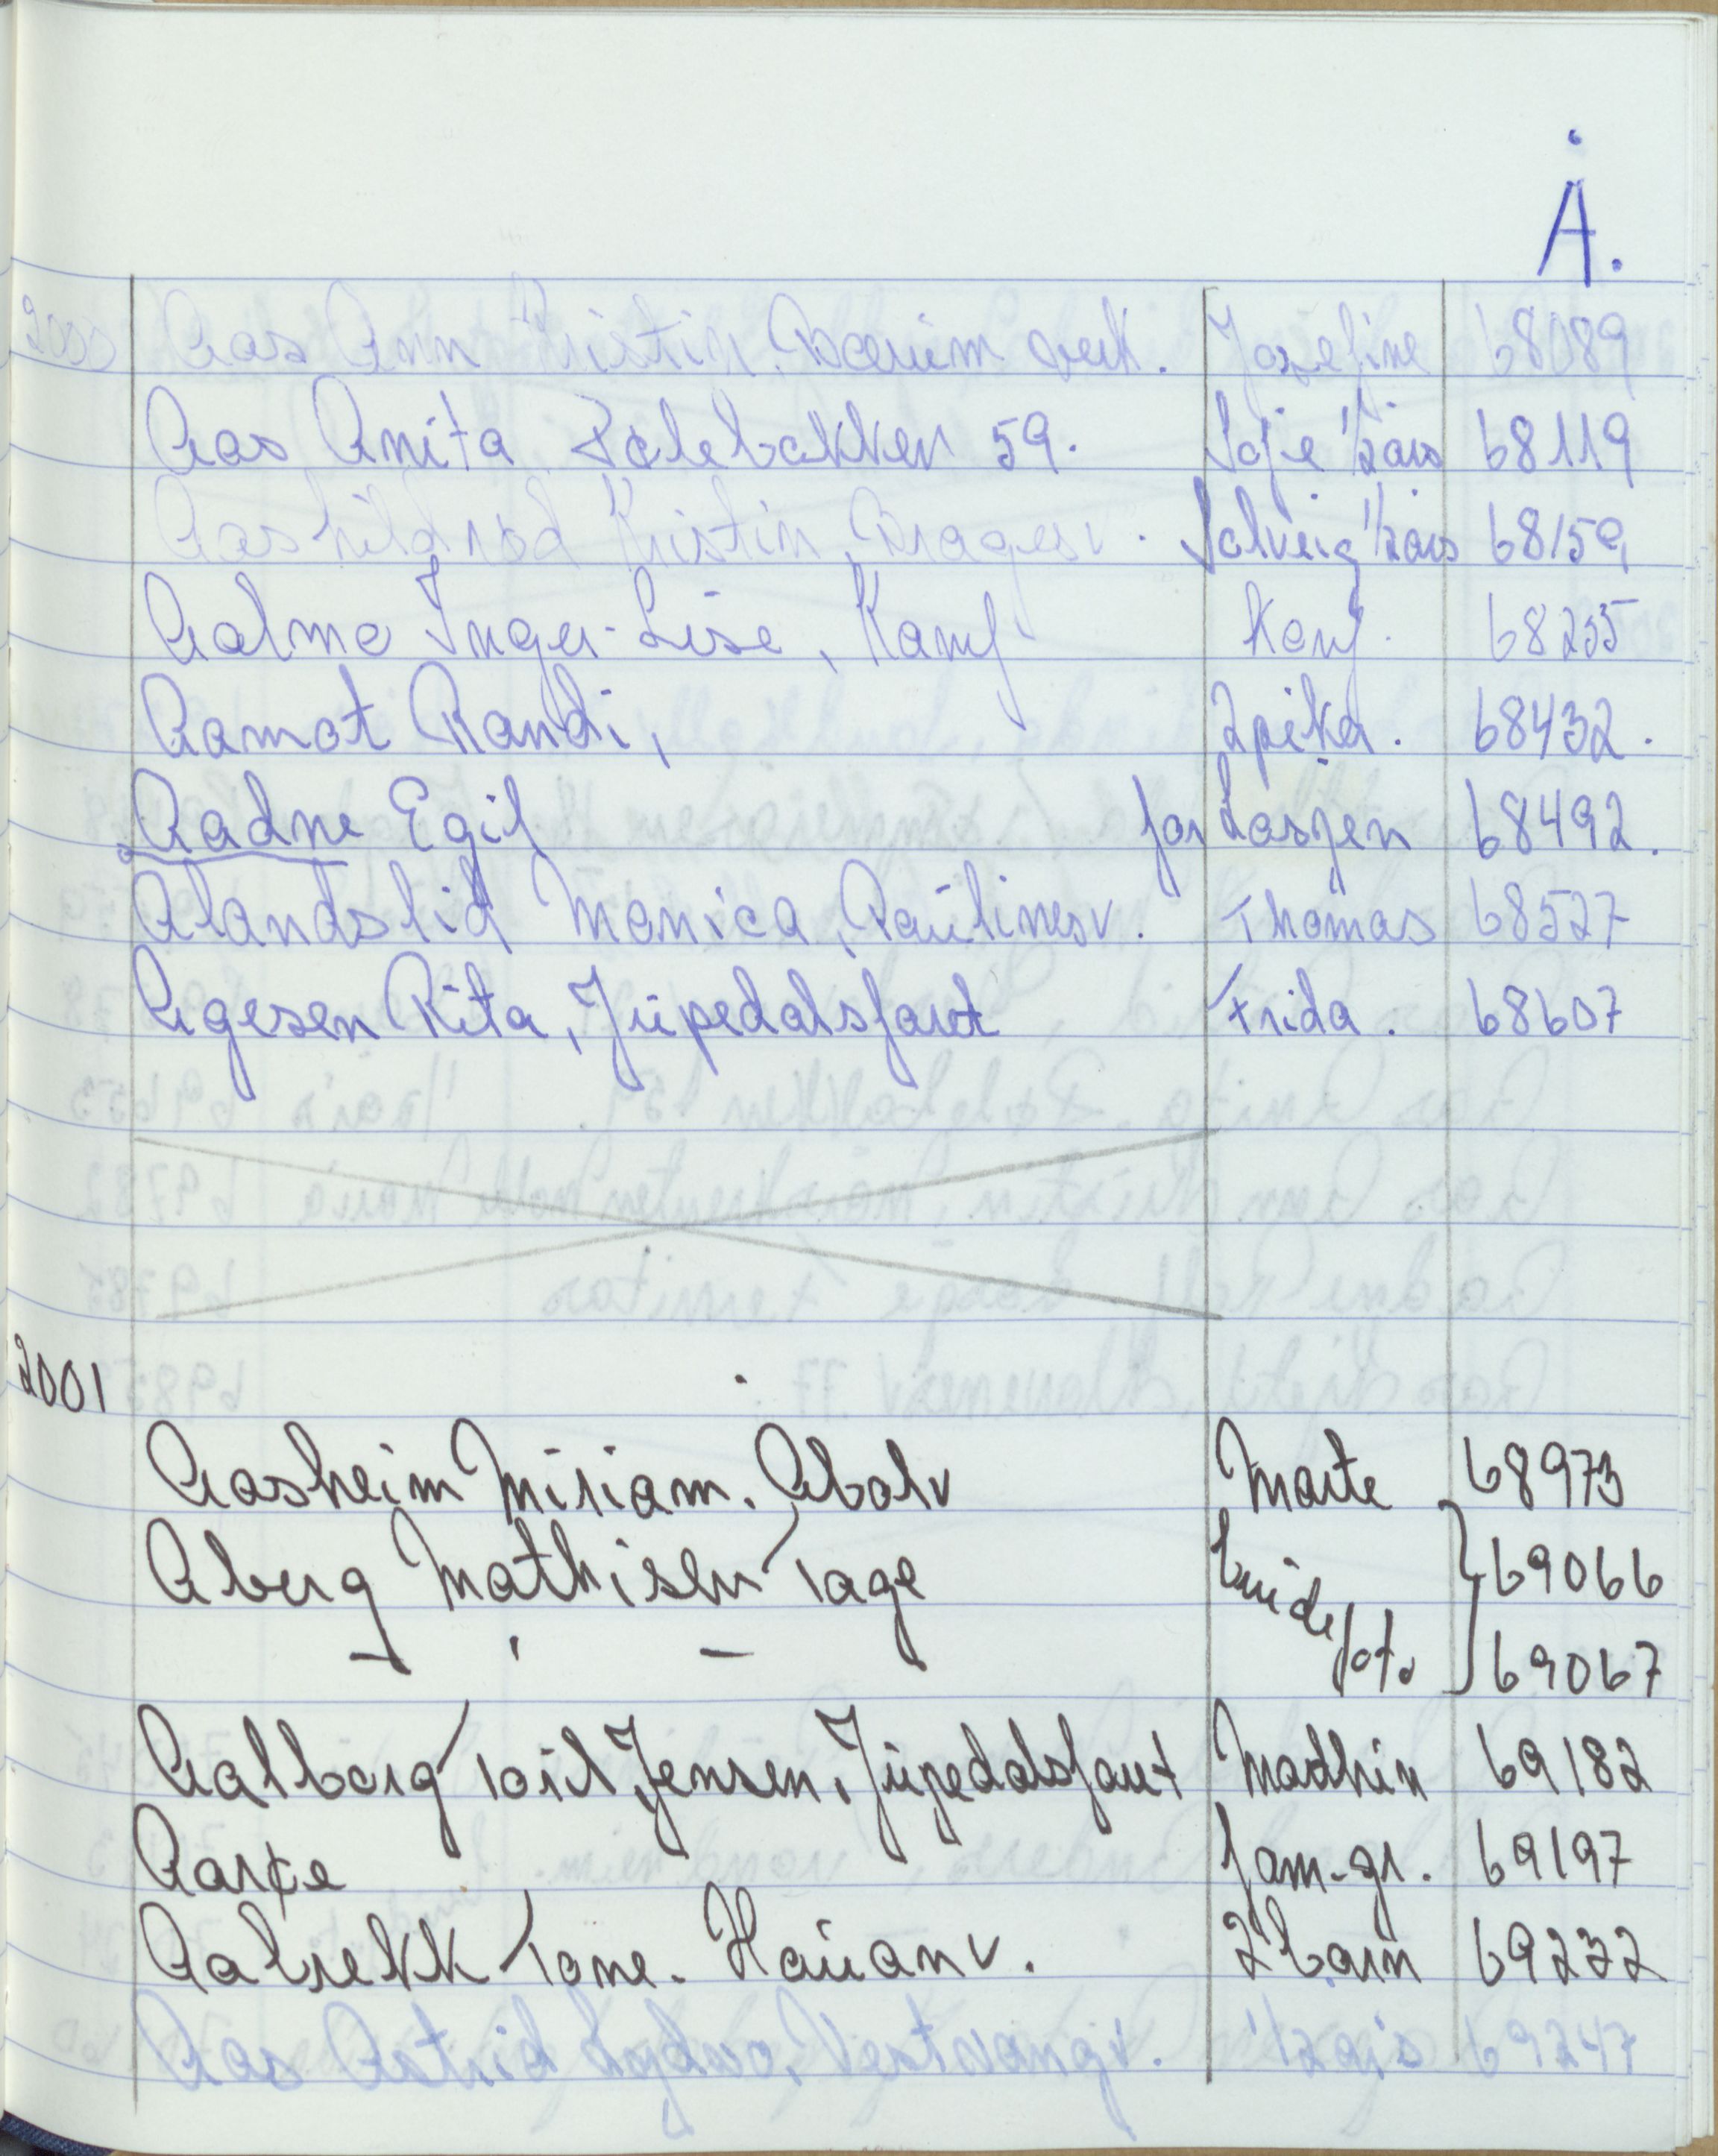 Å.
2000 Aas Ann Kristin. Bærum verk. Josefine 68089
Aas Anita Pølebakken 59. ½års 68119
Aashildrød Kristin, Kragesv. Solveig ½års 68159
Aalmo Inger-Lise, Konf Konf. 68235
Aamot Randi, 2 piker. 68432.
Aadne Egil for Lasjen 68492.
Alandslid Monica, Paulinesv. Thomas 68527
Agesen Rita, Jupedalsfaret Frida. 68607
2001
Aasheim Miriam. Abolv Marte 68973
Aberg Mathisen Tage brude 69066
— ' — foto 69067
Aalborg Toril Jensen, Jupedalsfaret Mathin 69182
Aarøe fam.gr. 69197
Aabrekk Tone. Hauanv. 2 barn 69232
Aas Astrid Lydvo, Vestvangv. ½års 69247